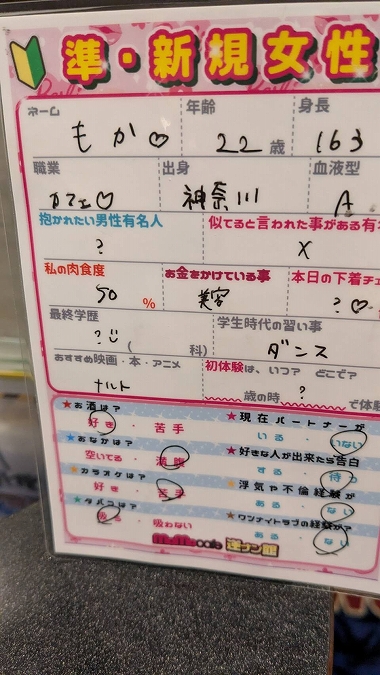 準・新規女性
ネーム 年齢 身長
もか♡ 22歳 163
職業 出身 血液型
カフェ♡ 神奈川 A
抱かれたい男性有名人 似てると言われた事がある有名
? X
私の肉食度 お金をかけている事 本日の下着チェ
50% 美容 ?♡
最終学歴 学生時代の習い事
? ( 科) ダンス
おすすめ映画・本・アニメ 初体験は、いつ? どこで?
ナルト ? 歳の時 で体験
★お酒は? ★現在パートナーが
好き・苦手 いる・いない
★おなかは? ★好きな人が出来たら告白
空いてる・満腹 する・待つ
★カラオケは? ★浮気や不倫経験が
好き・苦手 ある・ない
★タバコは? ★ワンナイトラブの経験が?
吸う・吸わない ある・ない
cafe 逆ナン館